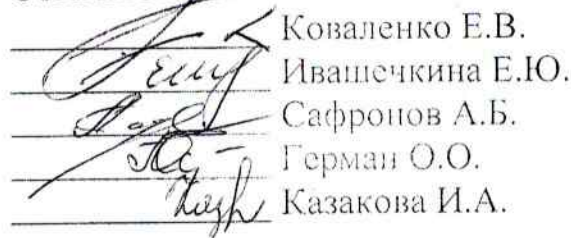 Коваленко Е.В.
Ивашечкина Е.Ю.
Сафронов А.Б.
Герман О.О.
Казакова И.А.